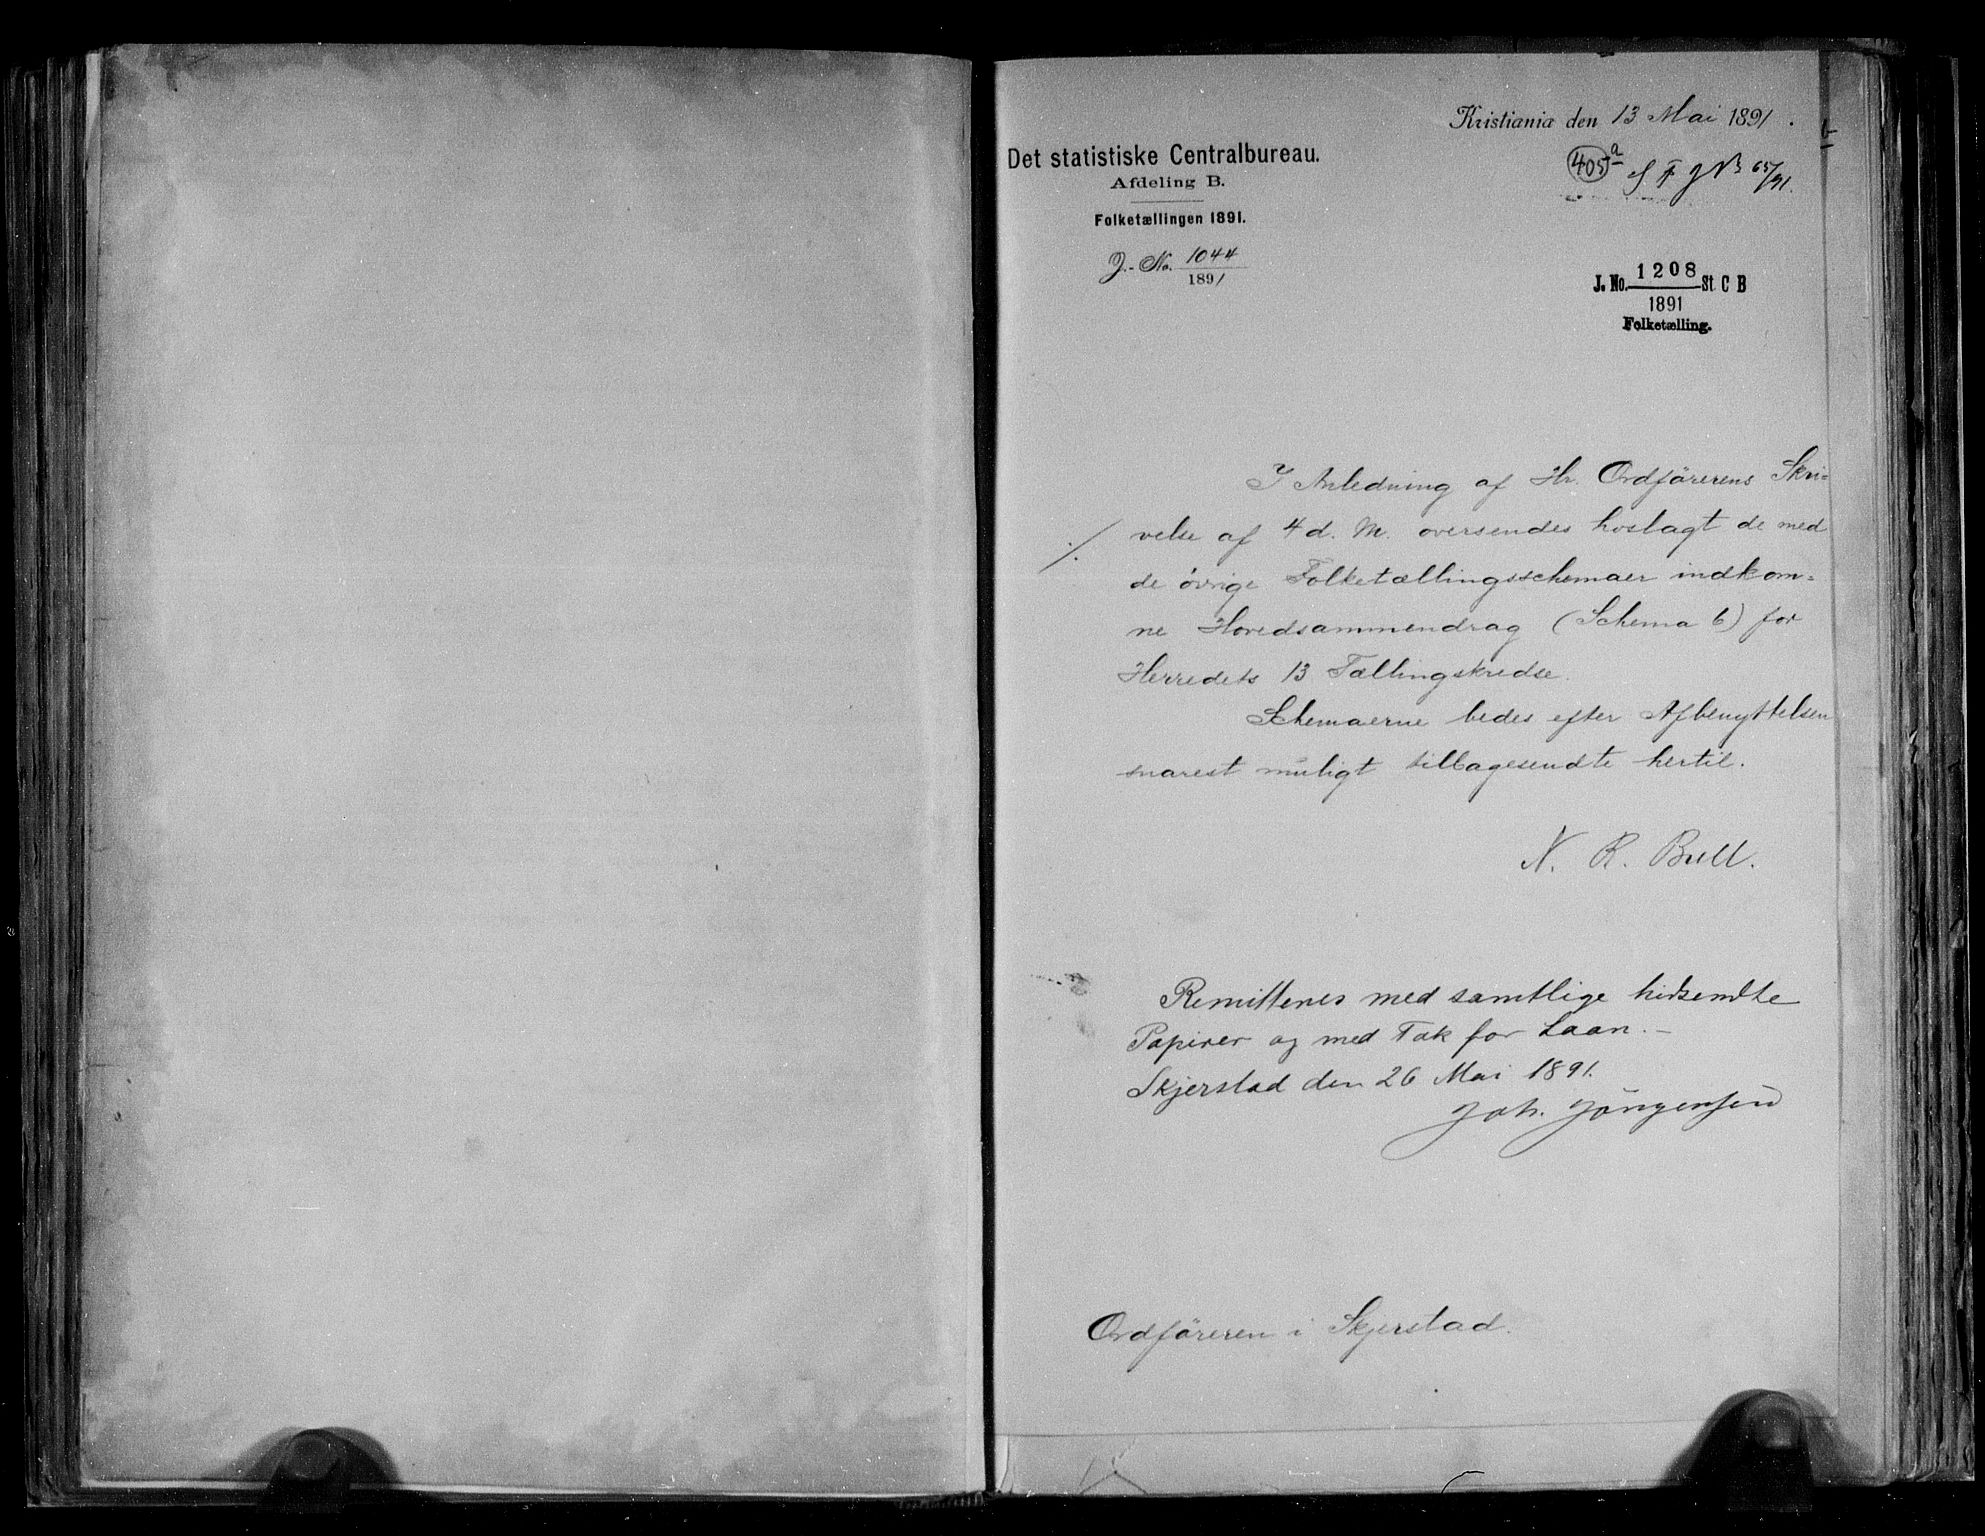 Kristiania den 13 Mai 1891.
Det statistiske Centralbureau.
Afdeling B.
Folketællingen 1891.
J.-No. 1044
1891
405 a
65/91.
J. No. 1208 St C B
1891
Folketælling.
I Anledning af Hr. Ordförerens Skri=
velse af 4 d. M. oversendes hoslagt de med
de övrige Folketællingsschemaer indkom=
ne Hovedsammendrag (Schema 6) for
Herredets 13 Tællingskredse.
Schemaerne bedes efter Afbenyttelsen
snarest muligt tilbagesendte hertil.
N. R. Bull.
Remitteres med samtlige hidsendte
Papirer og med Tak for Laan.-
Skjerstad den 26 Mai 1891.
Joh. Jörgensen
Ordföreren i Skjerstad.